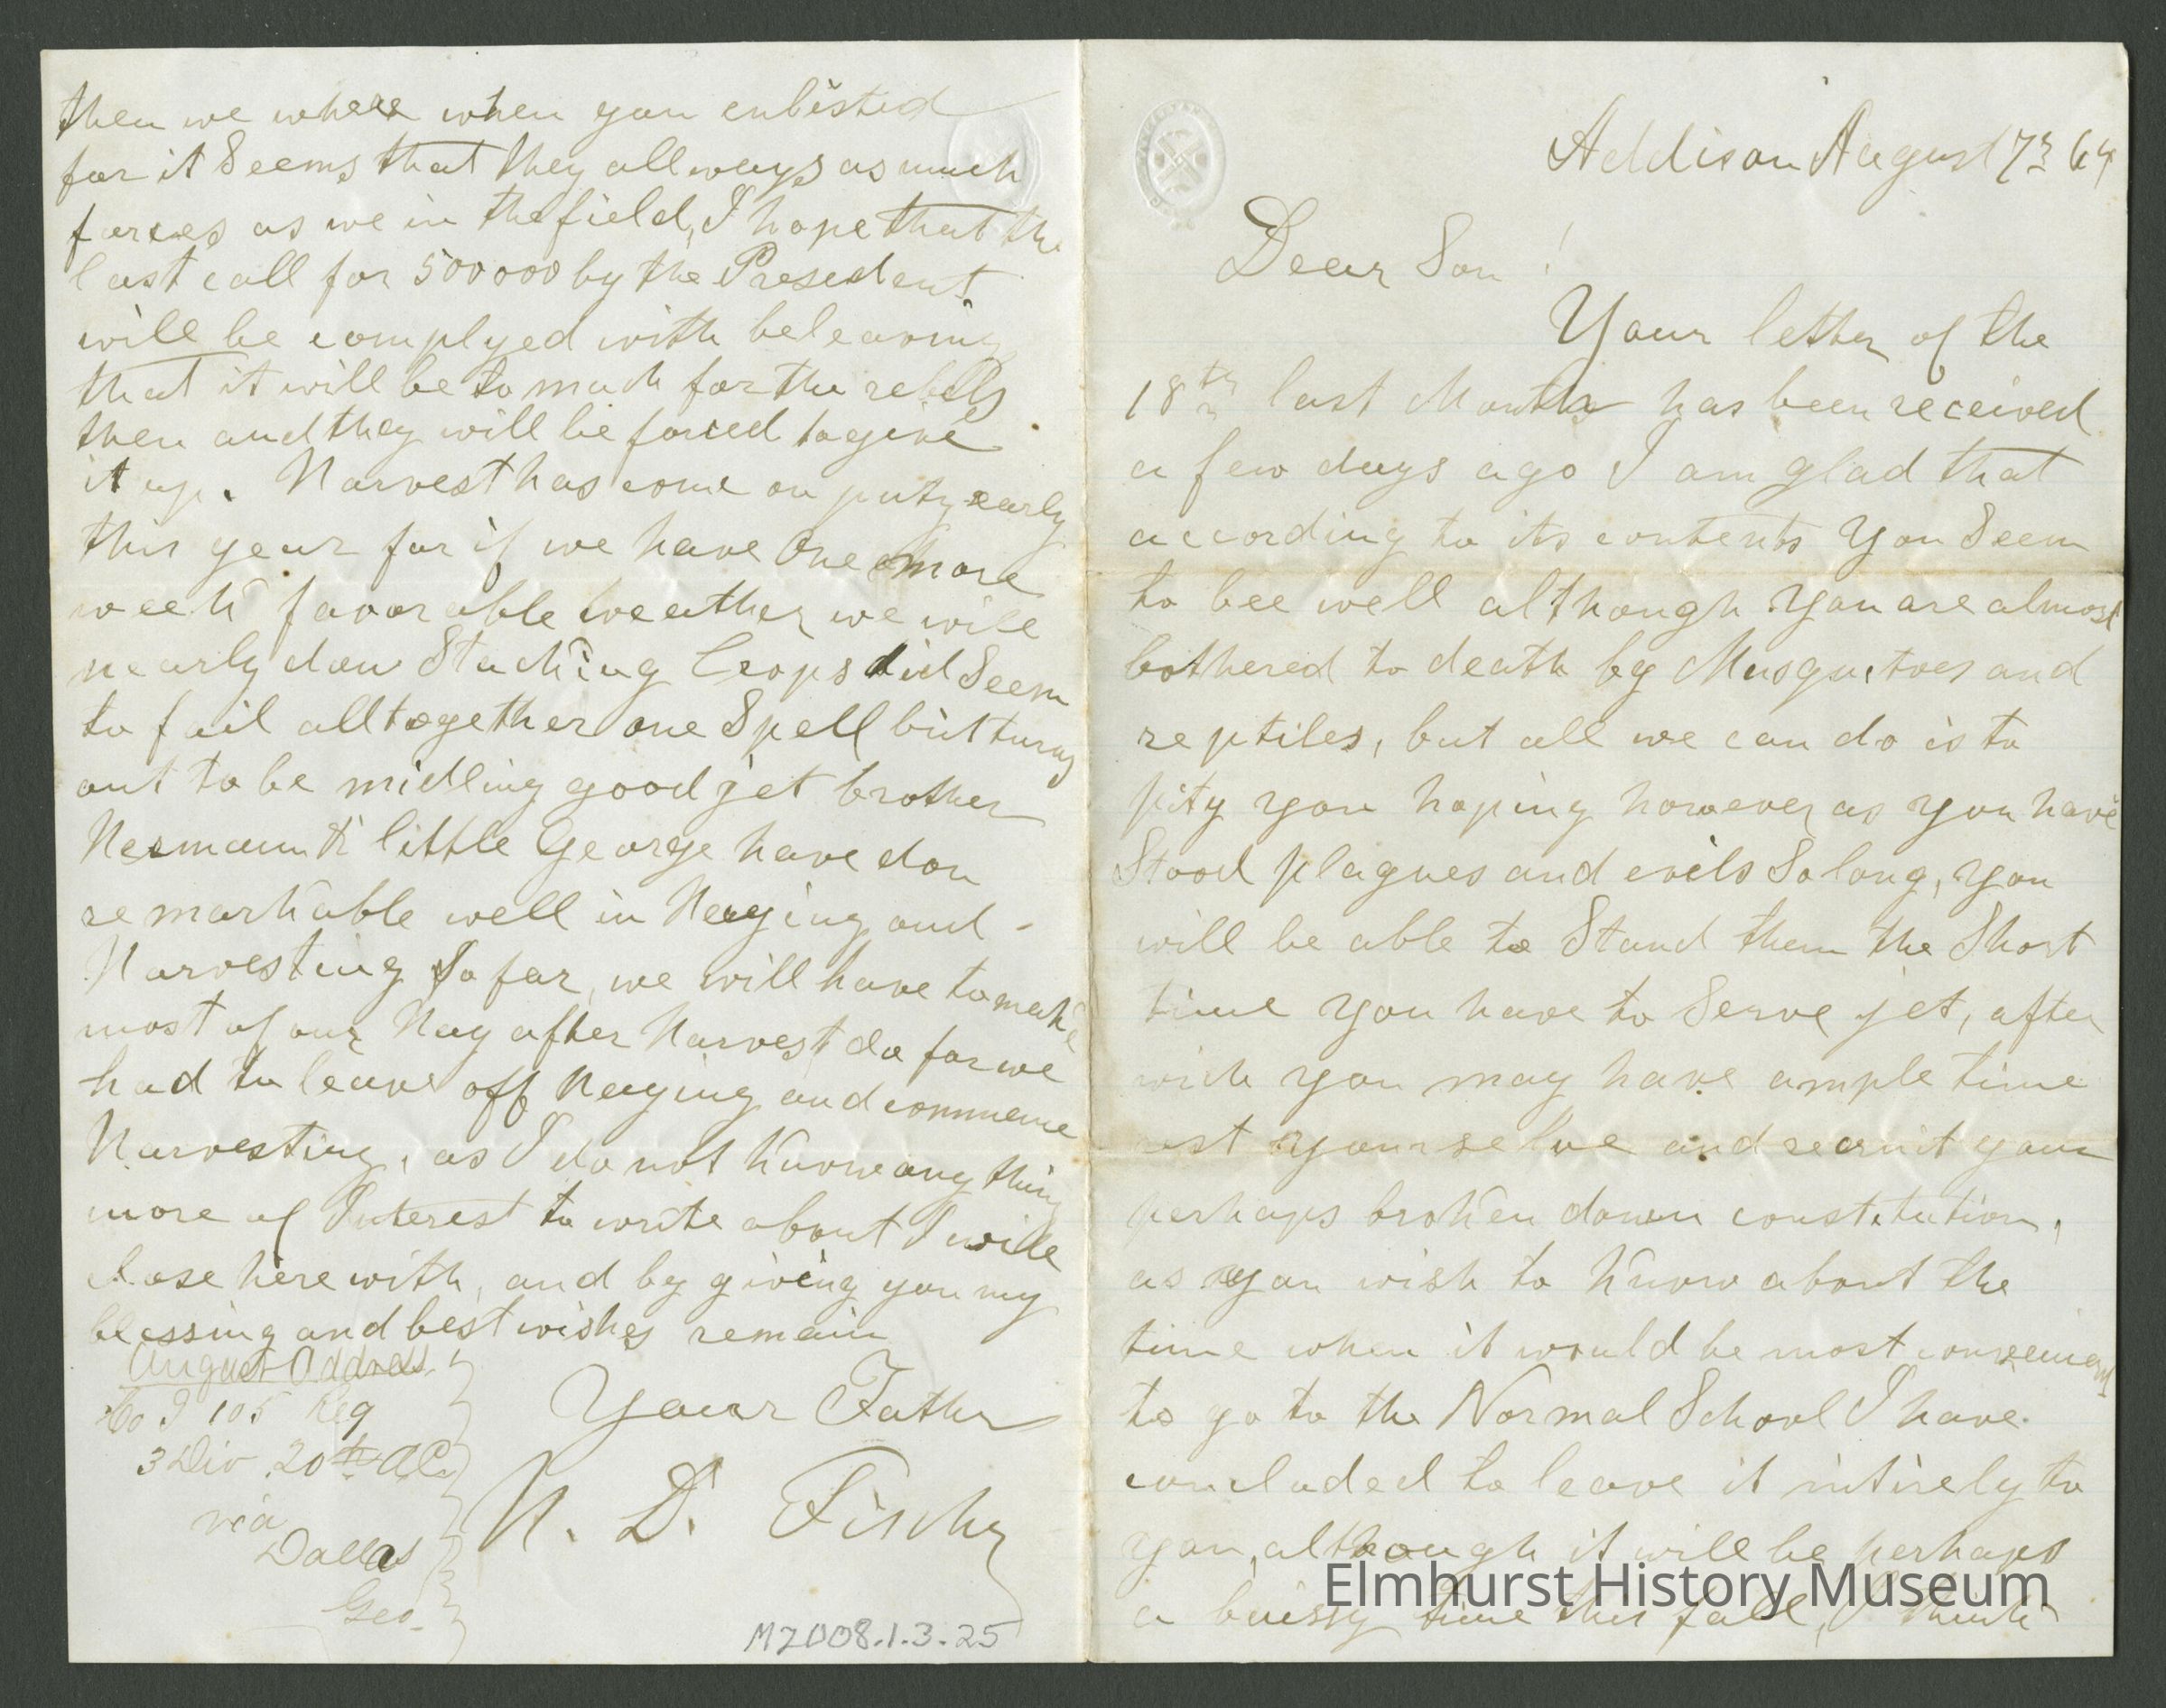 Addison August 7th 64
Dear Son!
Your letter of the
18th last Month has been received
a few days ago I am glad that
according to its contents You Seem
to bee well although You are almost
bothered to death by Musquitoes and
reptiles, but all we can do is to
pity you hoping however as you have
Stood plagues and evils So long, you
will be able to Stand them the Short
time you have to Serve jet, after
wich you may have ample time
rest yourselve and recruit your
perhaps broken down constitution,
as you wish to Know about the
time when it would be most convenient
to go to the Normal School I have
concluded to leave it intirely to
you, although it will be perhaps
a buissy time this fall, I think
then we where when you enlisted
for it Seems that they allways as much
forces as we in the field, I hope that the
last call for 500000 by the Presedent
will be complyed with beleaving
that it will be to much for the rebels
then and they will be forced to give
it up. Harvest has come on puty early
this year for if we have One more
week favorable weather we will
nearly don Stacking Crops did Seem
to fail alltogether one Spell but turns
out to be midling good jet brother
Hermann & little George have don
remarkable well in Haying and
Harvesting So far, we will have to make
most of our Hay after Harvest do for we
had to leave off Haying and commence
Harvesting, as I do not Know any thing
more of Interest to write about I will
close here with, and by giving you my
blessing and best wishes remain
Your Father
H. D. Fischer
August Address
Co I 105 Reg
3 Div 20th A.C.
via
Dallas
Geo.
M2008.1.3.25
Elmhurst History Museum